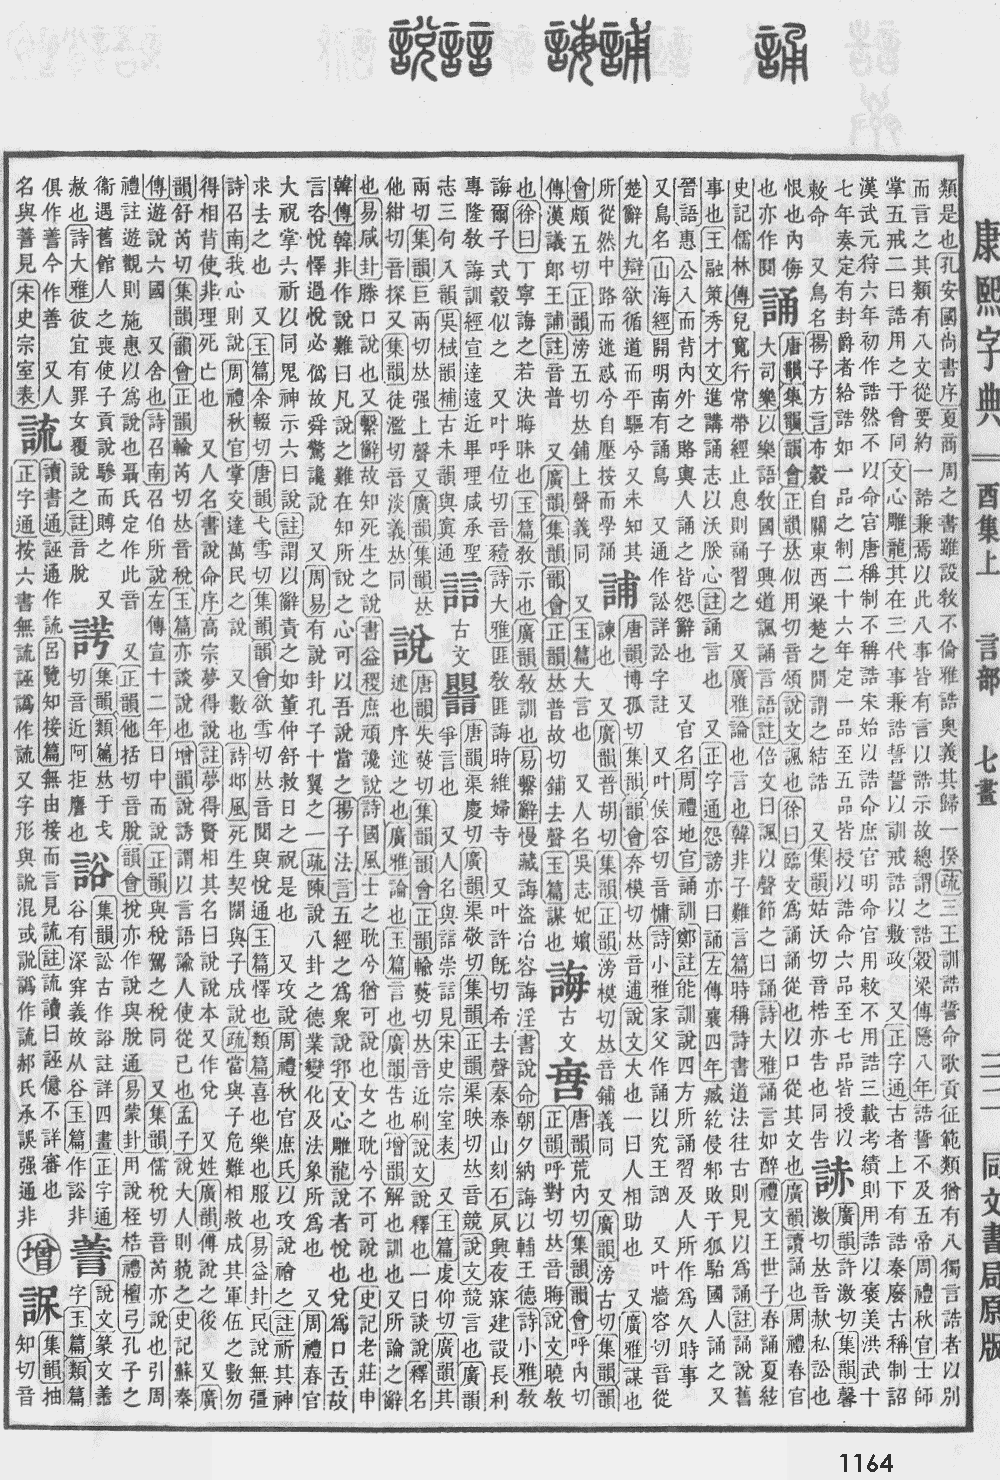 誦
誧
誨
誩
說
康熙字典
酉集上
言部
七畫
三二
同文書局原版
類是也孔安國尚書序夏商周之書雖設敎不倫雅誥奧義其歸一揆疏三王訓誥誓命歌貢征範類猶有八獨言誥者以別
而言之其類有八文從要約一誥兼焉以此八事皆有言以誥示故總謂之誥穀梁傳隱八年誥誓不及五帝周禮秋官士師
掌五戒二曰誥用之于會同文心雕龍其在三代事兼誥誓誓以訓戒誥以敷政　又正字通古者上下有誥秦廢古稱制詔
漢武元狩六年初作誥然不以命官唐稱制不稱誥宋始以誥命庶官明命官用敕不用誥三載考績則用誥以褒美洪武十
七年奏定有封爵者給誥如一品之制二十六年定一品至五品皆授以誥命六品至七品皆授以
敕命　又鳥名揚子方言布穀自關東西梁楚之閒謂之結誥　又集韻姑沃切音梏亦告也同告
廣韻許激切集韻馨
激切𠀤音赥私訟也
恨也內侮
也亦作鬩
誦
唐韻集韻韻會正韻𠀤似用切音頌說文諷也徐曰臨文爲誦誦從也以口從其文也廣韻讀誦也周禮春官
大司樂以樂語敎國子興道諷誦言語註倍文曰諷以聲節之曰誦詩大雅誦言如醉禮文王世子春誦夏絃
史記儒林傳兒寬行常帶經止息則誦習之　又廣雅論也言也韓非子難言篇時稱詩書道法往古則見以爲誦註誦說舊
事也王融策秀才文進講誦志以沃朕心註誦言也　又正字通怨謗亦曰誦左傳襄四年臧紇侵邾敗于狐駘國人誦之又
晉語惠公入而背內外之賂輿人誦之皆怨辭也　又官名周禮地官誦訓鄭註能訓說四方所誦習及人所作爲久時事
又鳥名山海經開明南有誦鳥　又通作訟詳訟字註　又叶侯容切音慵詩小雅家父作誦以究王訩　又叶牆容切音從
楚辭九辯欲循道而平驅兮又未知其
所從然中路而迷惑兮自壓按而學誦
誧
唐韻博孤切集韻韻會奔模切𠀤音逋說文大也一曰人相助也　又廣雅謀也
諫也　又廣韻普胡切集韻正韻滂模切𠀤音鋪義同　又廣韻滂古切集韻韻
會頗五切正韻滂五切𠀤鋪上聲義同　又玉篇大言也　又人名吳志妃嬪
傳漢議郎王誧註音普　又廣韻集韻韻會正韻𠀤普故切鋪去聲玉篇謀也
誨
古文
𧦷
唐韻荒內切集韻韻會呼內切
正韻呼對切𠀤音晦說文曉敎
也徐曰丁寧誨之若決晦昧也玉篇敎示也廣韻敎訓也易繫辭慢藏誨盜冶容誨淫書說命朝夕納誨以輔王德詩小雅敎
誨爾子式穀似之　又叶呼位切音𥡴詩大雅匪敎匪誨時維婦寺　又叶許旣切希去聲秦泰山刻石夙興夜寐建設長利
專隆敎誨訓經宣達遠近畢理咸承聖
志三句入韻吳棫韻補古未韻與寘通
誩
古文
唐韻渠慶切廣韻渠敬切集韻正韻渠映切𠀤音競說文競言也廣韻
爭言也　又人名與誩崇誩見宋史宗室表　又玉篇虔仰切廣韻其
兩切集韻巨兩切𠀤强上聲又廣韻集韻𠀤
他紺切音探又集韻徒濫切音淡義𠀤同
說
唐韻失爇切集韻韻會正韻輸爇切𠀤音近刷說文說釋也一曰談說釋名
述也序述之也廣雅論也玉篇言也廣韻告也增韻解也訓也又所論之辭
也易咸卦滕口說也又繫辭故知死生之說書益稷庶頑讒說詩國風士之耽兮猶可說也女之耽兮不可說也史記老莊申
韓傳韓非作說難曰凡說之難在知所說之心可以吾說當之揚子法言五經之爲衆說郛文心雕龍說者悅也兌爲口舌故
言咨悅懌過悅必僞故舜驚讒說　又周易有說卦孔子十翼之一疏陳說八卦之德業變化及法象所爲也　又周禮春官
大祝掌六祈以同鬼神示六曰說註謂以辭責之如董仲舒救日之祝是也　又攻說周禮秋官庶氏以攻說禬之註祈其神
求去之也　又玉篇余輟切唐韻弋雪切集韻韻會欲雪切𠀤音閱與悅通玉篇懌也類篇喜也樂也服也易益卦民說無疆
詩召南我心則說周禮秋官掌交達萬民之說　又數也詩邶風死生契闊與子成說疏當與子危難相救成其軍伍之數勿
得相背使非理死亡也　又人名書說命序高宗夢得說註夢得賢相其名曰說說本又作兌　又姓廣韻傅說之後　又廣
韻舒芮切集韻韻會正韻輸芮切𠀤音稅玉篇亦談說也增韻說誘謂以言語諭人使從己也孟子說大人則藐之史記蘇秦
傳遊說六國　又舍也詩召南召伯所說左傳宣十二年日中而說正韻與稅駕之稅同　又集韻儒稅切音芮亦說也引周
禮註遊觀則施惠以爲說也聶氏定作此音　又正韻他括切音脫韻會挩亦作說與脫通易蒙卦用說桎梏禮檀弓孔子之
衞遇舊館人之喪使子貢說驂而賻之　又
赦也詩大雅彼宜有罪女覆說之註音脫
集韻類篇𠀤于戈
切音近阿拒譍也
𧨂
集韻訟古作𧨂註詳四畫正字通
谷有深穽義故从谷玉篇作訟非
譱
說文篆文譱
字玉篇類篇
俱作善今作善　又人
名與善見宋史宗室表
䛆
讀書通誣通作䛆呂覽知接篇無由接而言見䛆註䛆讀曰誣億不詳審也
正字通按六書無䛆誣譌作䛆又字形與說混或說譌作䛆郝氏承誤强通非
增
集韻抽
知切音
1164